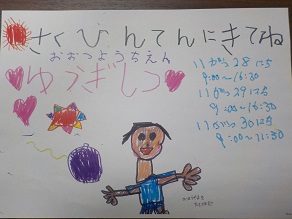 さくひんてんにきてね
おおつようちえん
ゆうぎしつ
11がつ28にち
9:00〜16:30
11がつ29にち
9:00〜16:30
11がつ30にち
9:00〜11:30